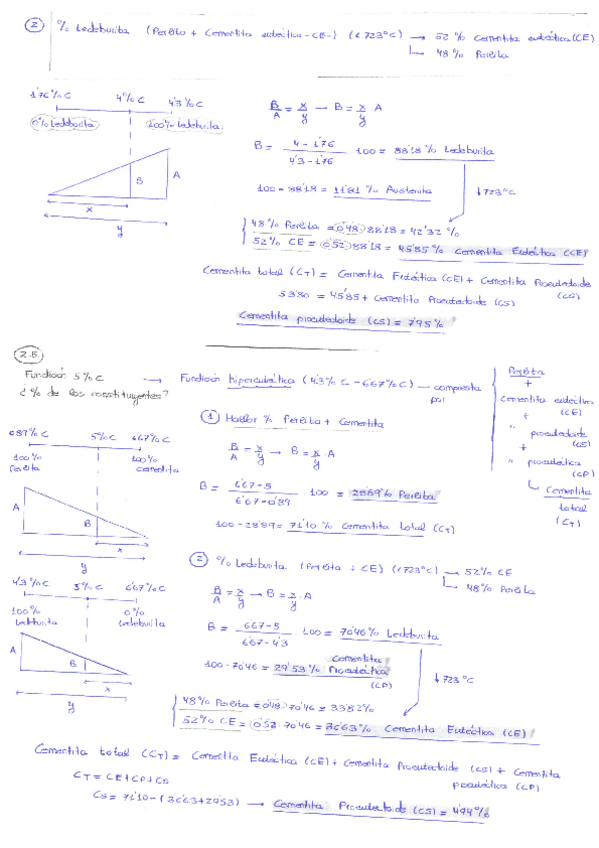 ② % Ledeburita (Perlita + Cementita eutéctica -CE-) (< 723°C) → 52% Cementita eutéctica (CE)
↳ 48% Perlita
1'76%C 4%C 4'3%C
0% Ledeburita 100% Ledeburita
B/A = x/y → B = x/y · A
B = (4 - 1'76)/(4'3 - 1'76) · 100 = 88'18% Ledeburita
100 - 88'18 = 11'81% Austenita
↓ 723°C
B A
x
y
48% Perlita = 0'48 · 88'18 = 42'32%
52% CE = 0'52 · 88'18 = 45'85% Cementita Eutéctica (CE)
Cementita total (CT) = Cementita Eutéctica (CE) + Cementita Proeutectoide (CS)
53'80 = 45'85 + Cementita Proeutectoide (CS)
Cementita proeutectoide (CS) = 7'95%
2.5.
Fundición 5%C
¿% de los constituyentes?
→ Fundición hipereutéctica (4'3%C - 6'67%C) — compuesta por
Perlita
+
Cementita eutéctica (CE)
+
" proeutectoide (CS)
+
" proeutéctica (CP)
↳ Cementita total (CT)
① Hallar % Perlita + Cementita
0'89%C 5%C 6'67%C
100% Perlita 100% cementita
A B
x
y
B/A = x/y → B = x/y · A
B = (6'67 - 5)/(6'67 - 0'89) · 100 = 28'89% Perlita
100 - 28'89 = 71'10% Cementita total (CT)
② % Ledeburita (Perlita + CE) (< 723°C) → 52% CE
↳ 48% Perlita
4'3%C 5%C 6'67%C
100% Ledeburita 0% Ledeburita
A B
x
y
B/A = x/y → B = x/y · A
B = (6'67 - 5)/(6'67 - 4'3) · 100 = 70'46% Ledeburita
100 - 70'46 = 29'53% Cementita Proeutéctica (CP)
↓ 723°C
48% Perlita = 0'48 · 70'46 = 33'82%
52% CE = 0'52 · 70'46 = 36'63% Cementita Eutéctica (CE)
Cementita total (CT) = Cementita Eutéctica (CE) + Cementita Proeutectoide (CS) + Cementita proeutéctica (CP)
CT = CE + CP + CS
CS = 71'10 - (36'63 + 29'53) → Cementita Proeutectoide (CS) = 4'94%